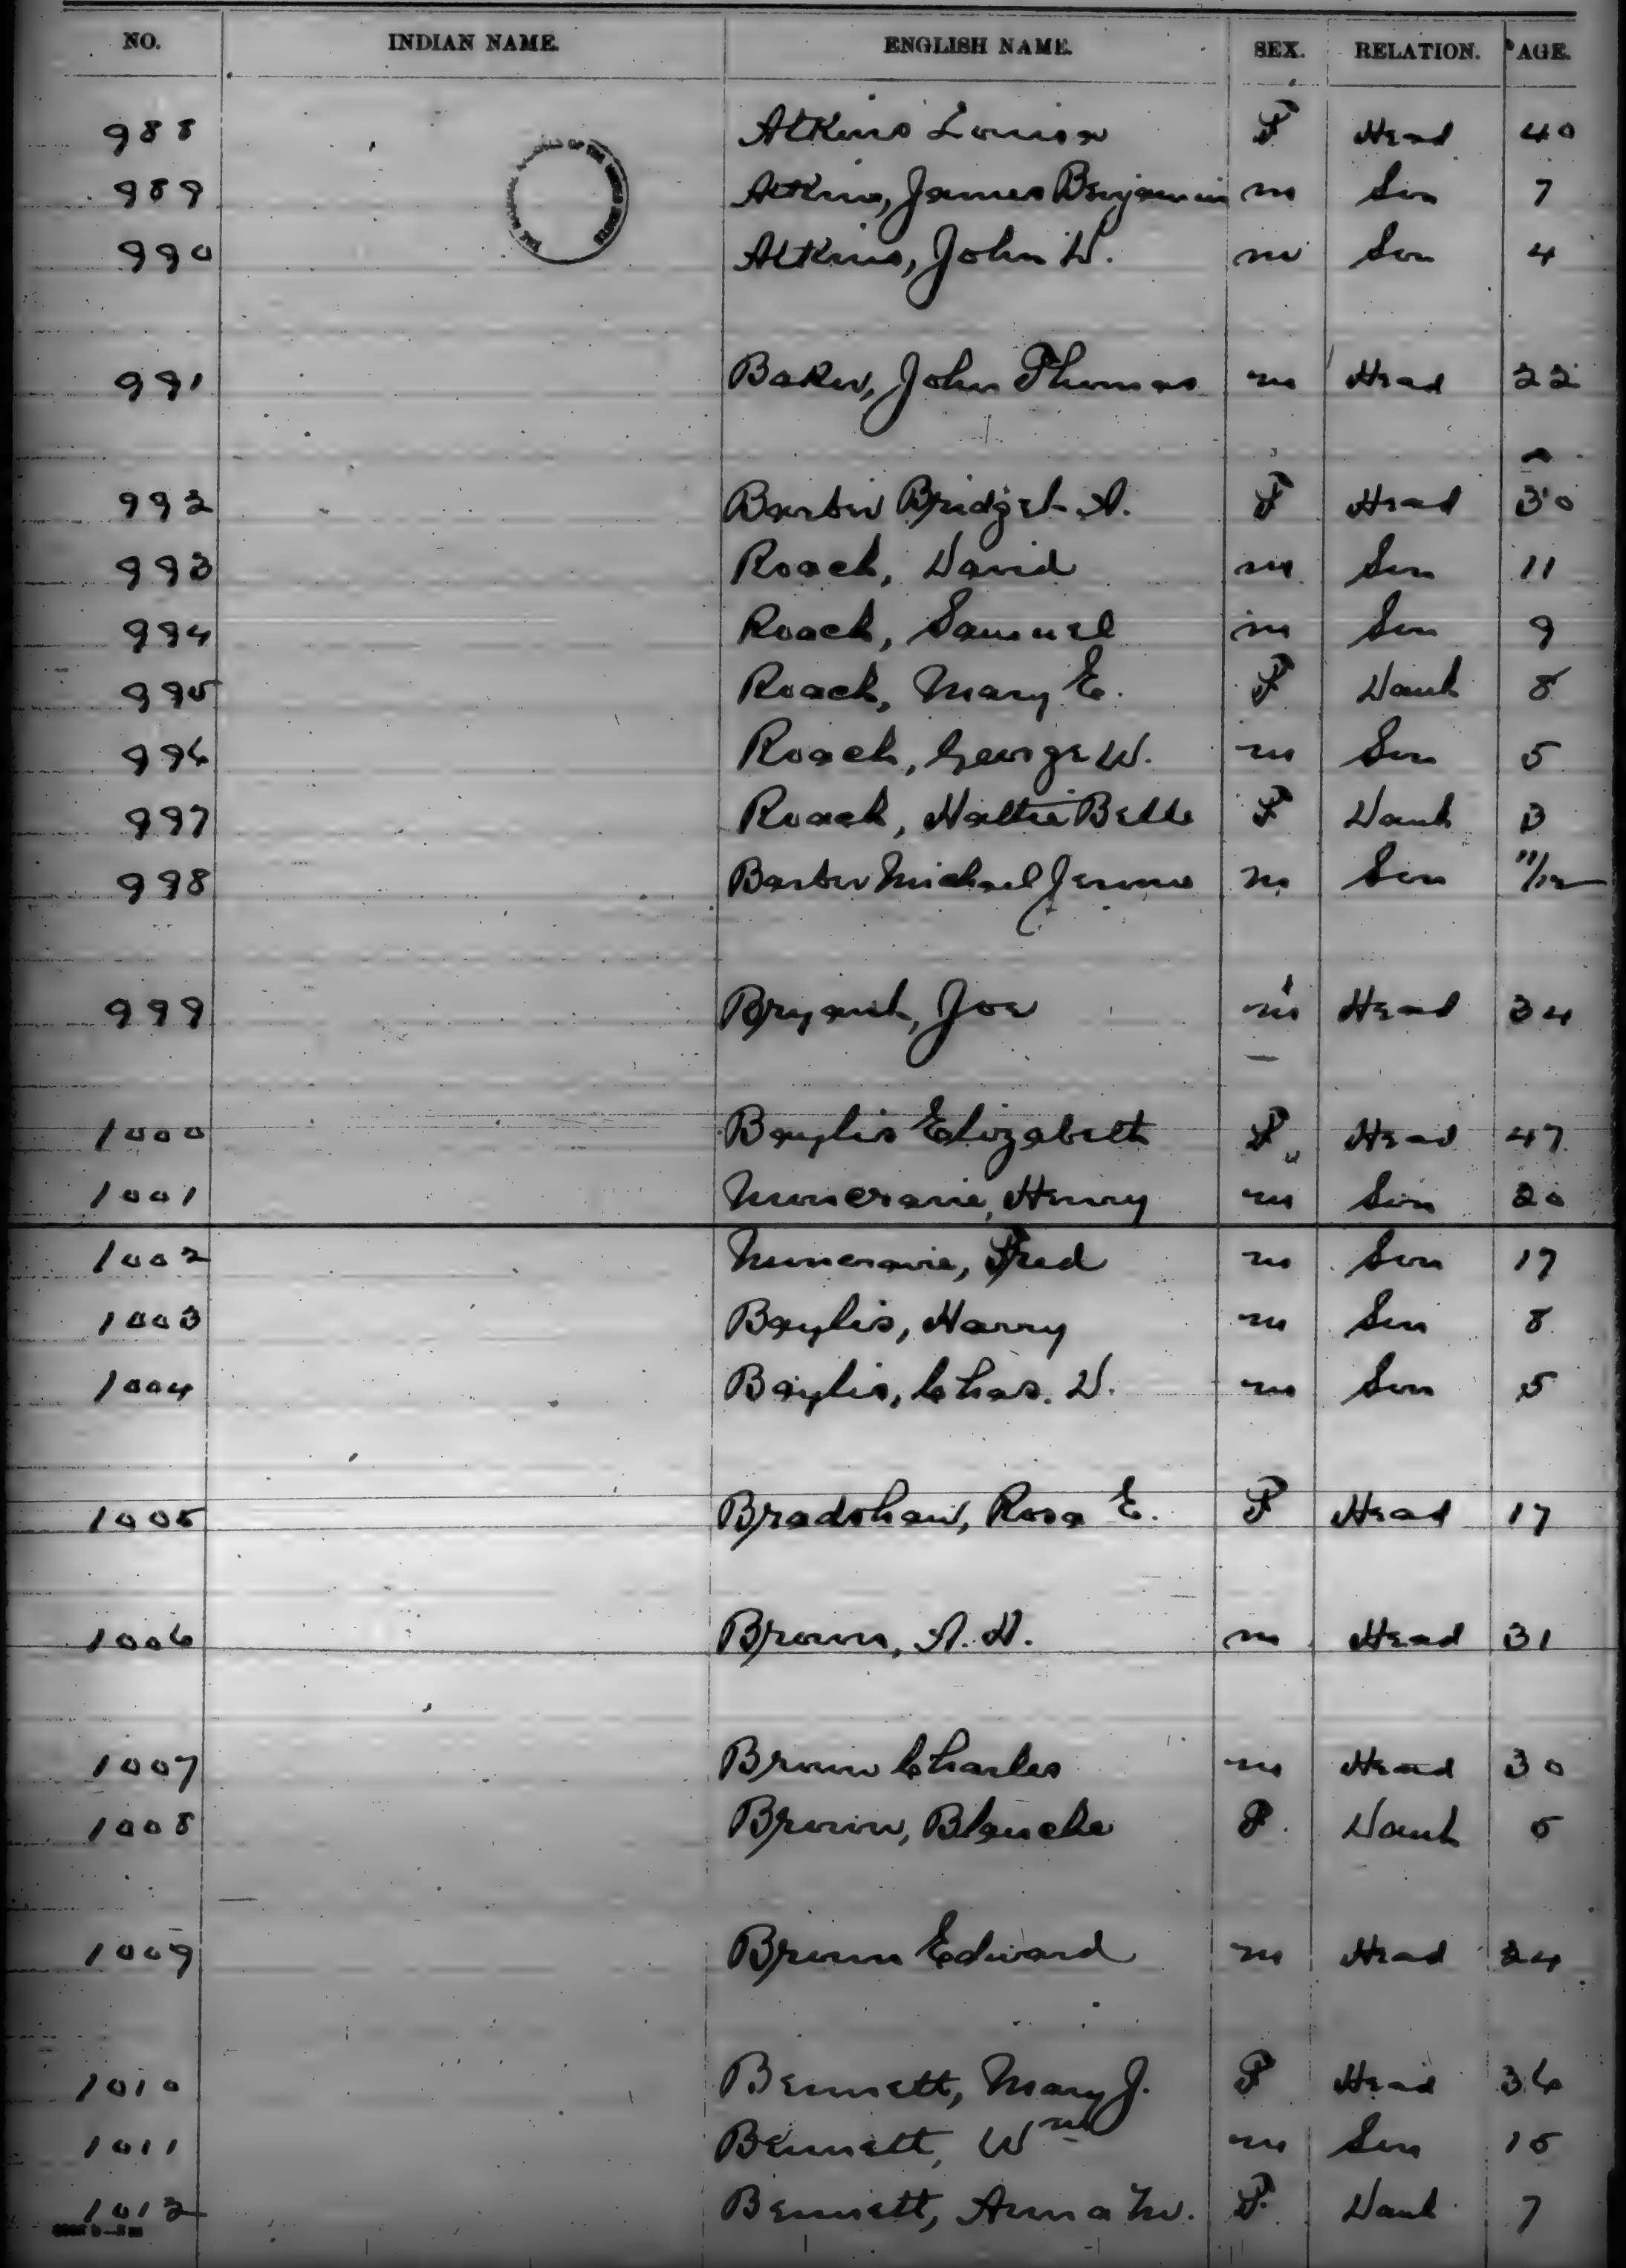 NO. INDIAN NAME. ENGLISH NAME. SEX. RELATION. AGE.
988 Atkins Louisa F Head 40
989 Atkins, James Benjamin m Son 7
990 Atkins, John D. m Son 4
991 Baker, John Thomas m Head 22
992 Barber Bridget A. F Head 30
993 Roach, David m Son 11
994 Roach, Samuel m Son 9
995 Roach, Mary E. F Dauh 8
996 Roach, George W. m Son 5
997 Roach, Hattie Belle F Dauh 3
998 Barber Michael Jerome m Son 11/12
999 Bryant, Joe m Head 34
1000 Baylis Elizabeth F Head 47
1001 Muncravie, Henry m Son 20
1002 Muncravie, Fred m Son 17
1003 Baylis, Harry m Son 8
1004 Baylis, Chas. D. m Son 5
1005 Bradshaw, Rosa E. F Head 17
1006 Brown, A. D. m Head 31
1007 Brown Charles m Head 30
1008 Brown, Blanche F Dauh 5
1009 Brown Edward m Head 24
1010 Bennett, Mary J. F Head 36
1011 Bennett, Wm m Son 15
1012 Bennett, Anna M. F Dauh 7